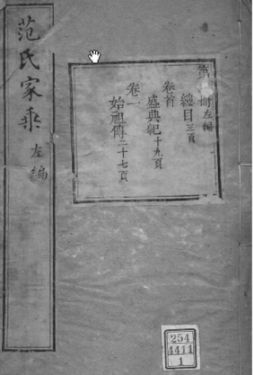 范氏家乘 左編
左編
總目 三頁
卷首
盛典紀 十九頁
卷一
始祖傳 二十七頁
254
4414
1